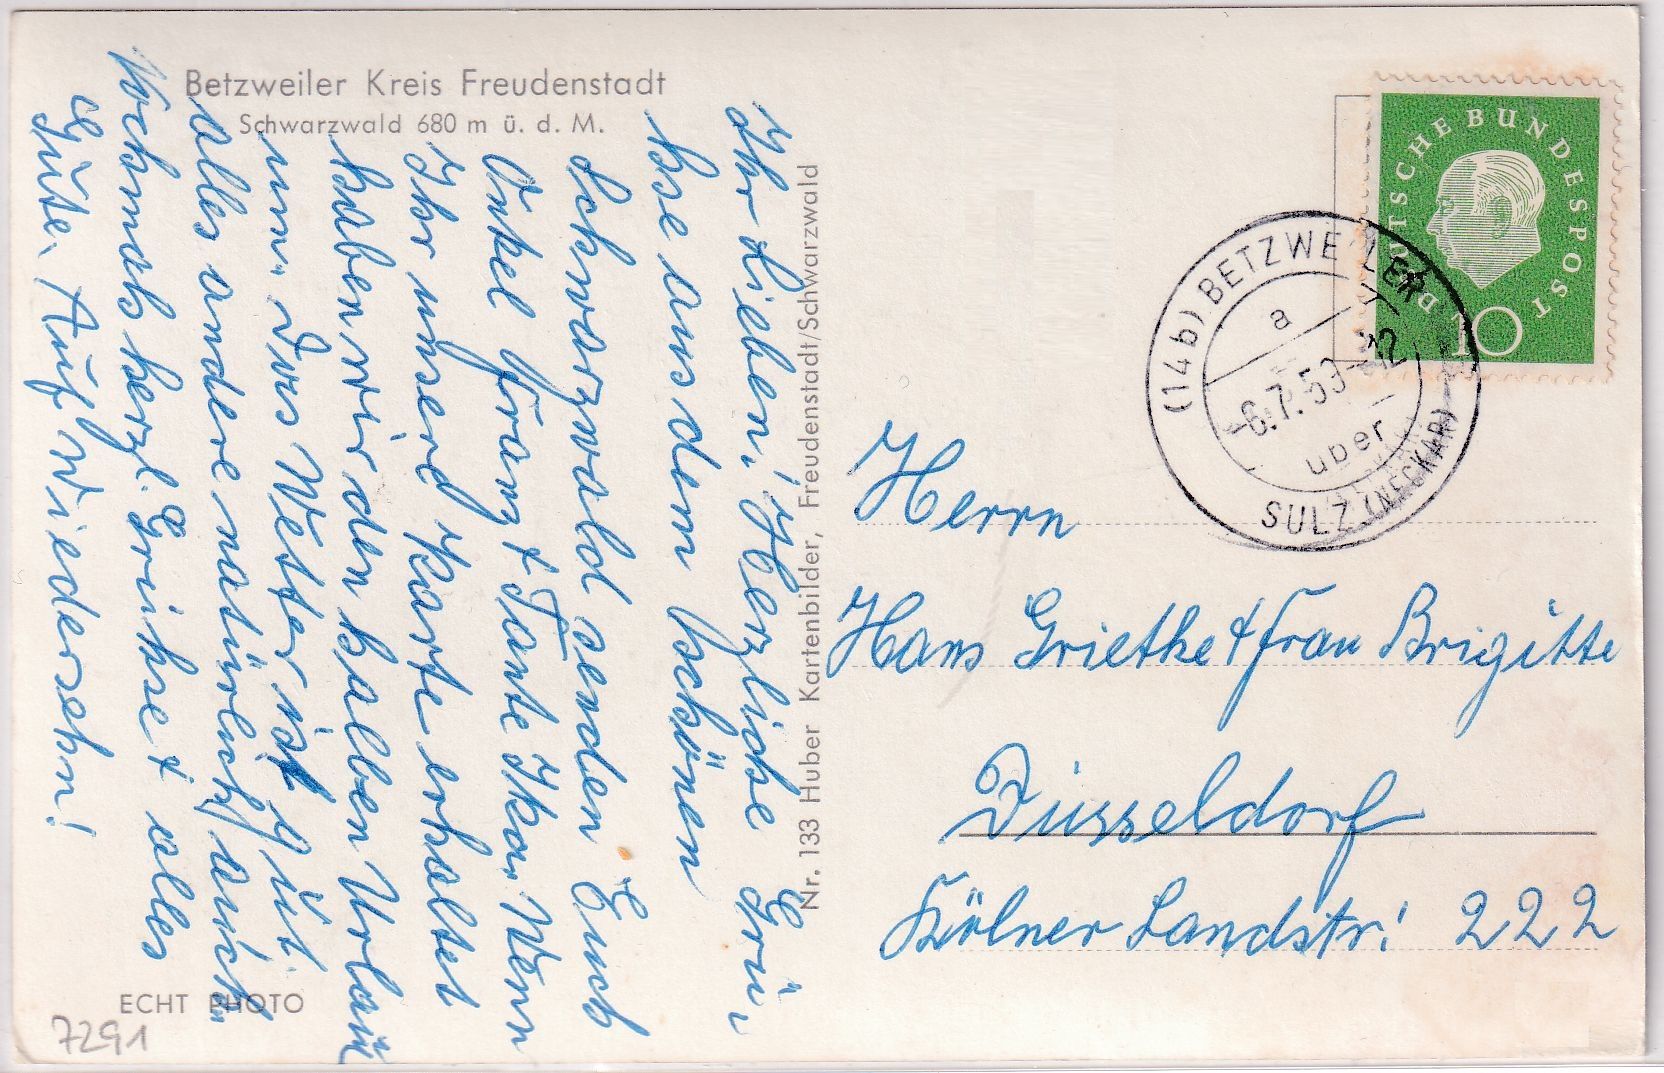 Betzweiler Kreis Freudenstadt
Schwarzwald 680 m ü. d. M.
Ihr Lieben! Herzliche Grü-
hse aus dem schönen
Schwarzwald senden Euch
Onkel Franz + Tante Ika. Wenn
Ihr unsere Karte erhaltet
haben wir den halben Urlaub
um. Das Wetter ist gut
alles andere natürlich auch.
Nochmals herzl. Grühse + alles
Gute. Auf Wiedersehn!
ECHT PHOTO
7291
Nr. 133 Huber Kartenbilder, Freudenstadt/Schwarzwald
DEUTSCHE BUNDESPOST
10
(14b) BETZWEILER
a
-6.7.59-12
über
SULZ (NECKAR)
Herrn
Hans Griethe + Frau Brigitte
Düsseldorf
Kölner Landstr. 222